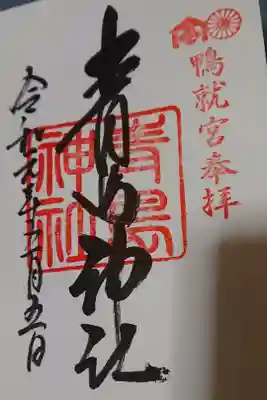 鴨就宮奉拝
青島神社
青島神社
令和元年 月五日